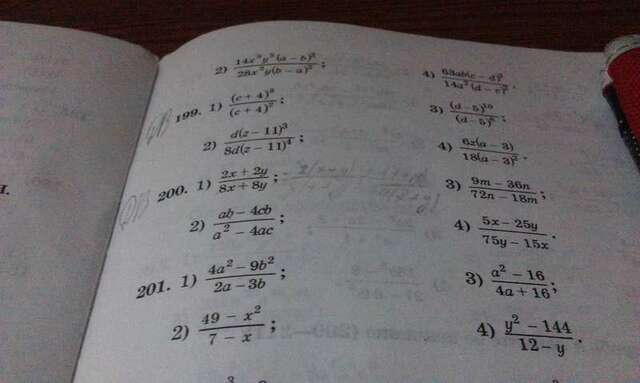 2) \frac{14x^3y^2(a-b)^2}{28x^2y(b-a)^2};
4) \frac{63ab(c-d)^3}{14a^2(d-c)^3}.
199. 1) \frac{(c+4)^3}{(c+4)^2};
3) \frac{(d-5)^{10}}{(d-5)^5};
2) \frac{d(z-11)^3}{8d(z-11)^4};
4) \frac{6z(a-3)}{18(a-3)^2}.
200. 1) \frac{2x+2y}{8x+8y};
3) \frac{9m-36n}{72n-18m};
2) \frac{ab-4cb}{a^2-4ac};
4) \frac{5x-25y}{75y-15x}.
201. 1) \frac{4a^2-9b^2}{2a-3b};
3) \frac{a^2-16}{4a+16};
2) \frac{49-x^2}{7-x};
4) \frac{y^2-144}{12-y}.